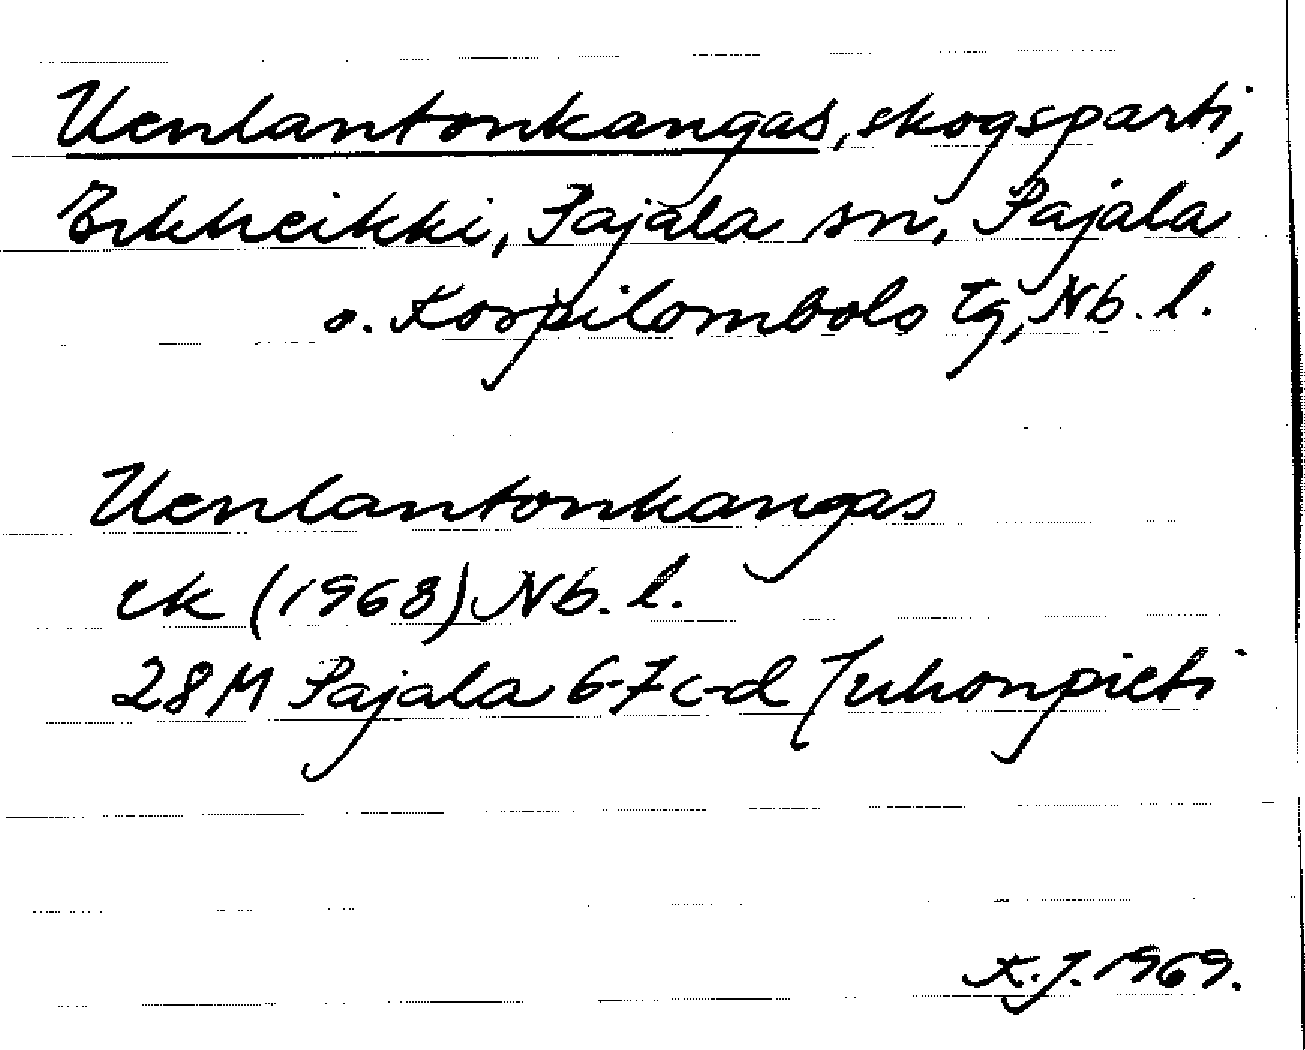 Uenlantonkangas, skogsparti,
Erkheikki, Pajala sn, Pajala
o. Korpilombolo tg, Nb. l.
Uenlantonkangas
ek (1968) Nb. l.
28M Pajala 6-7 c-d Juhonpieti
K.J. 1969.